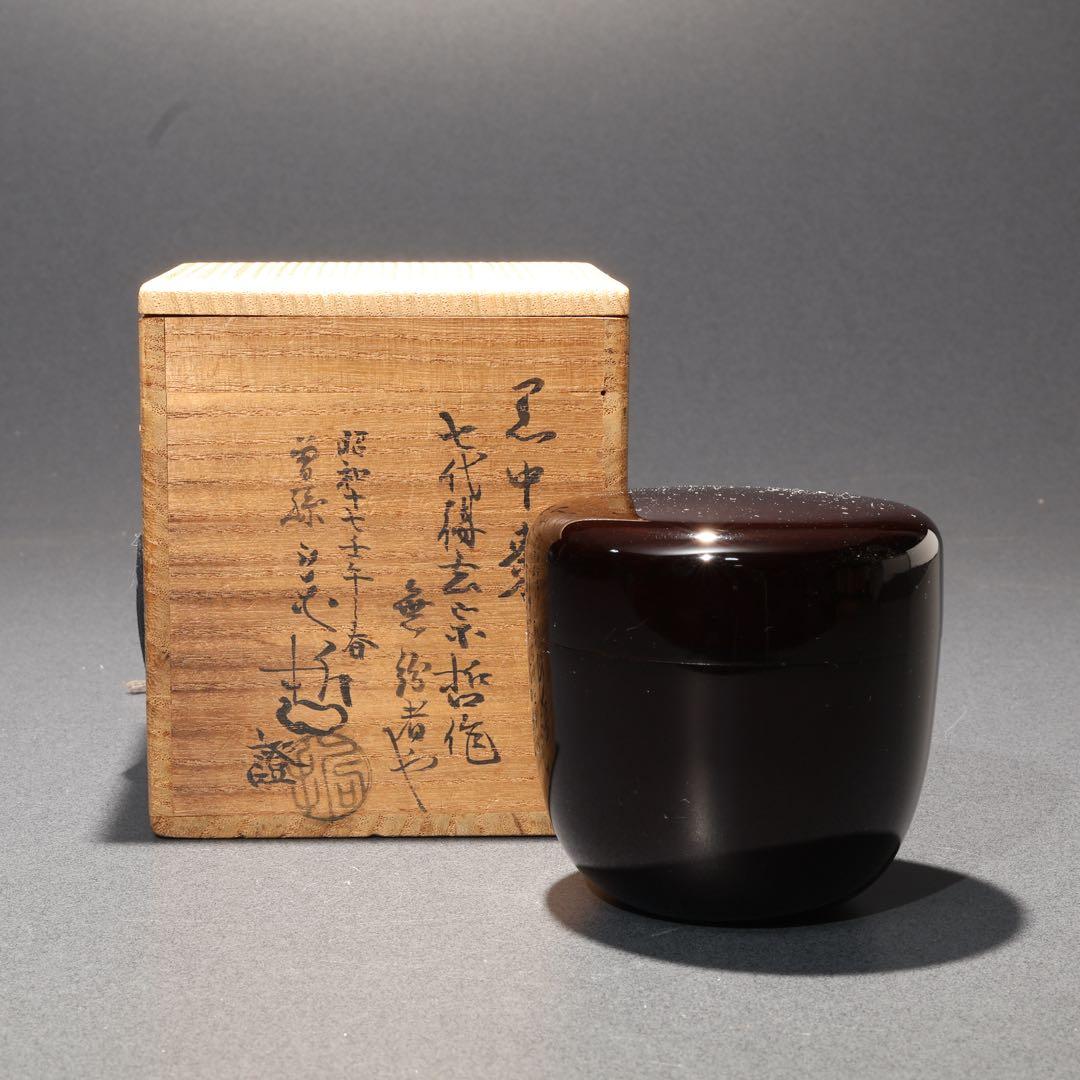 黒中棗
七代得玄宗哲作
無紛者也
昭和十七壬午年春
曽孫 宗哲
證
哲